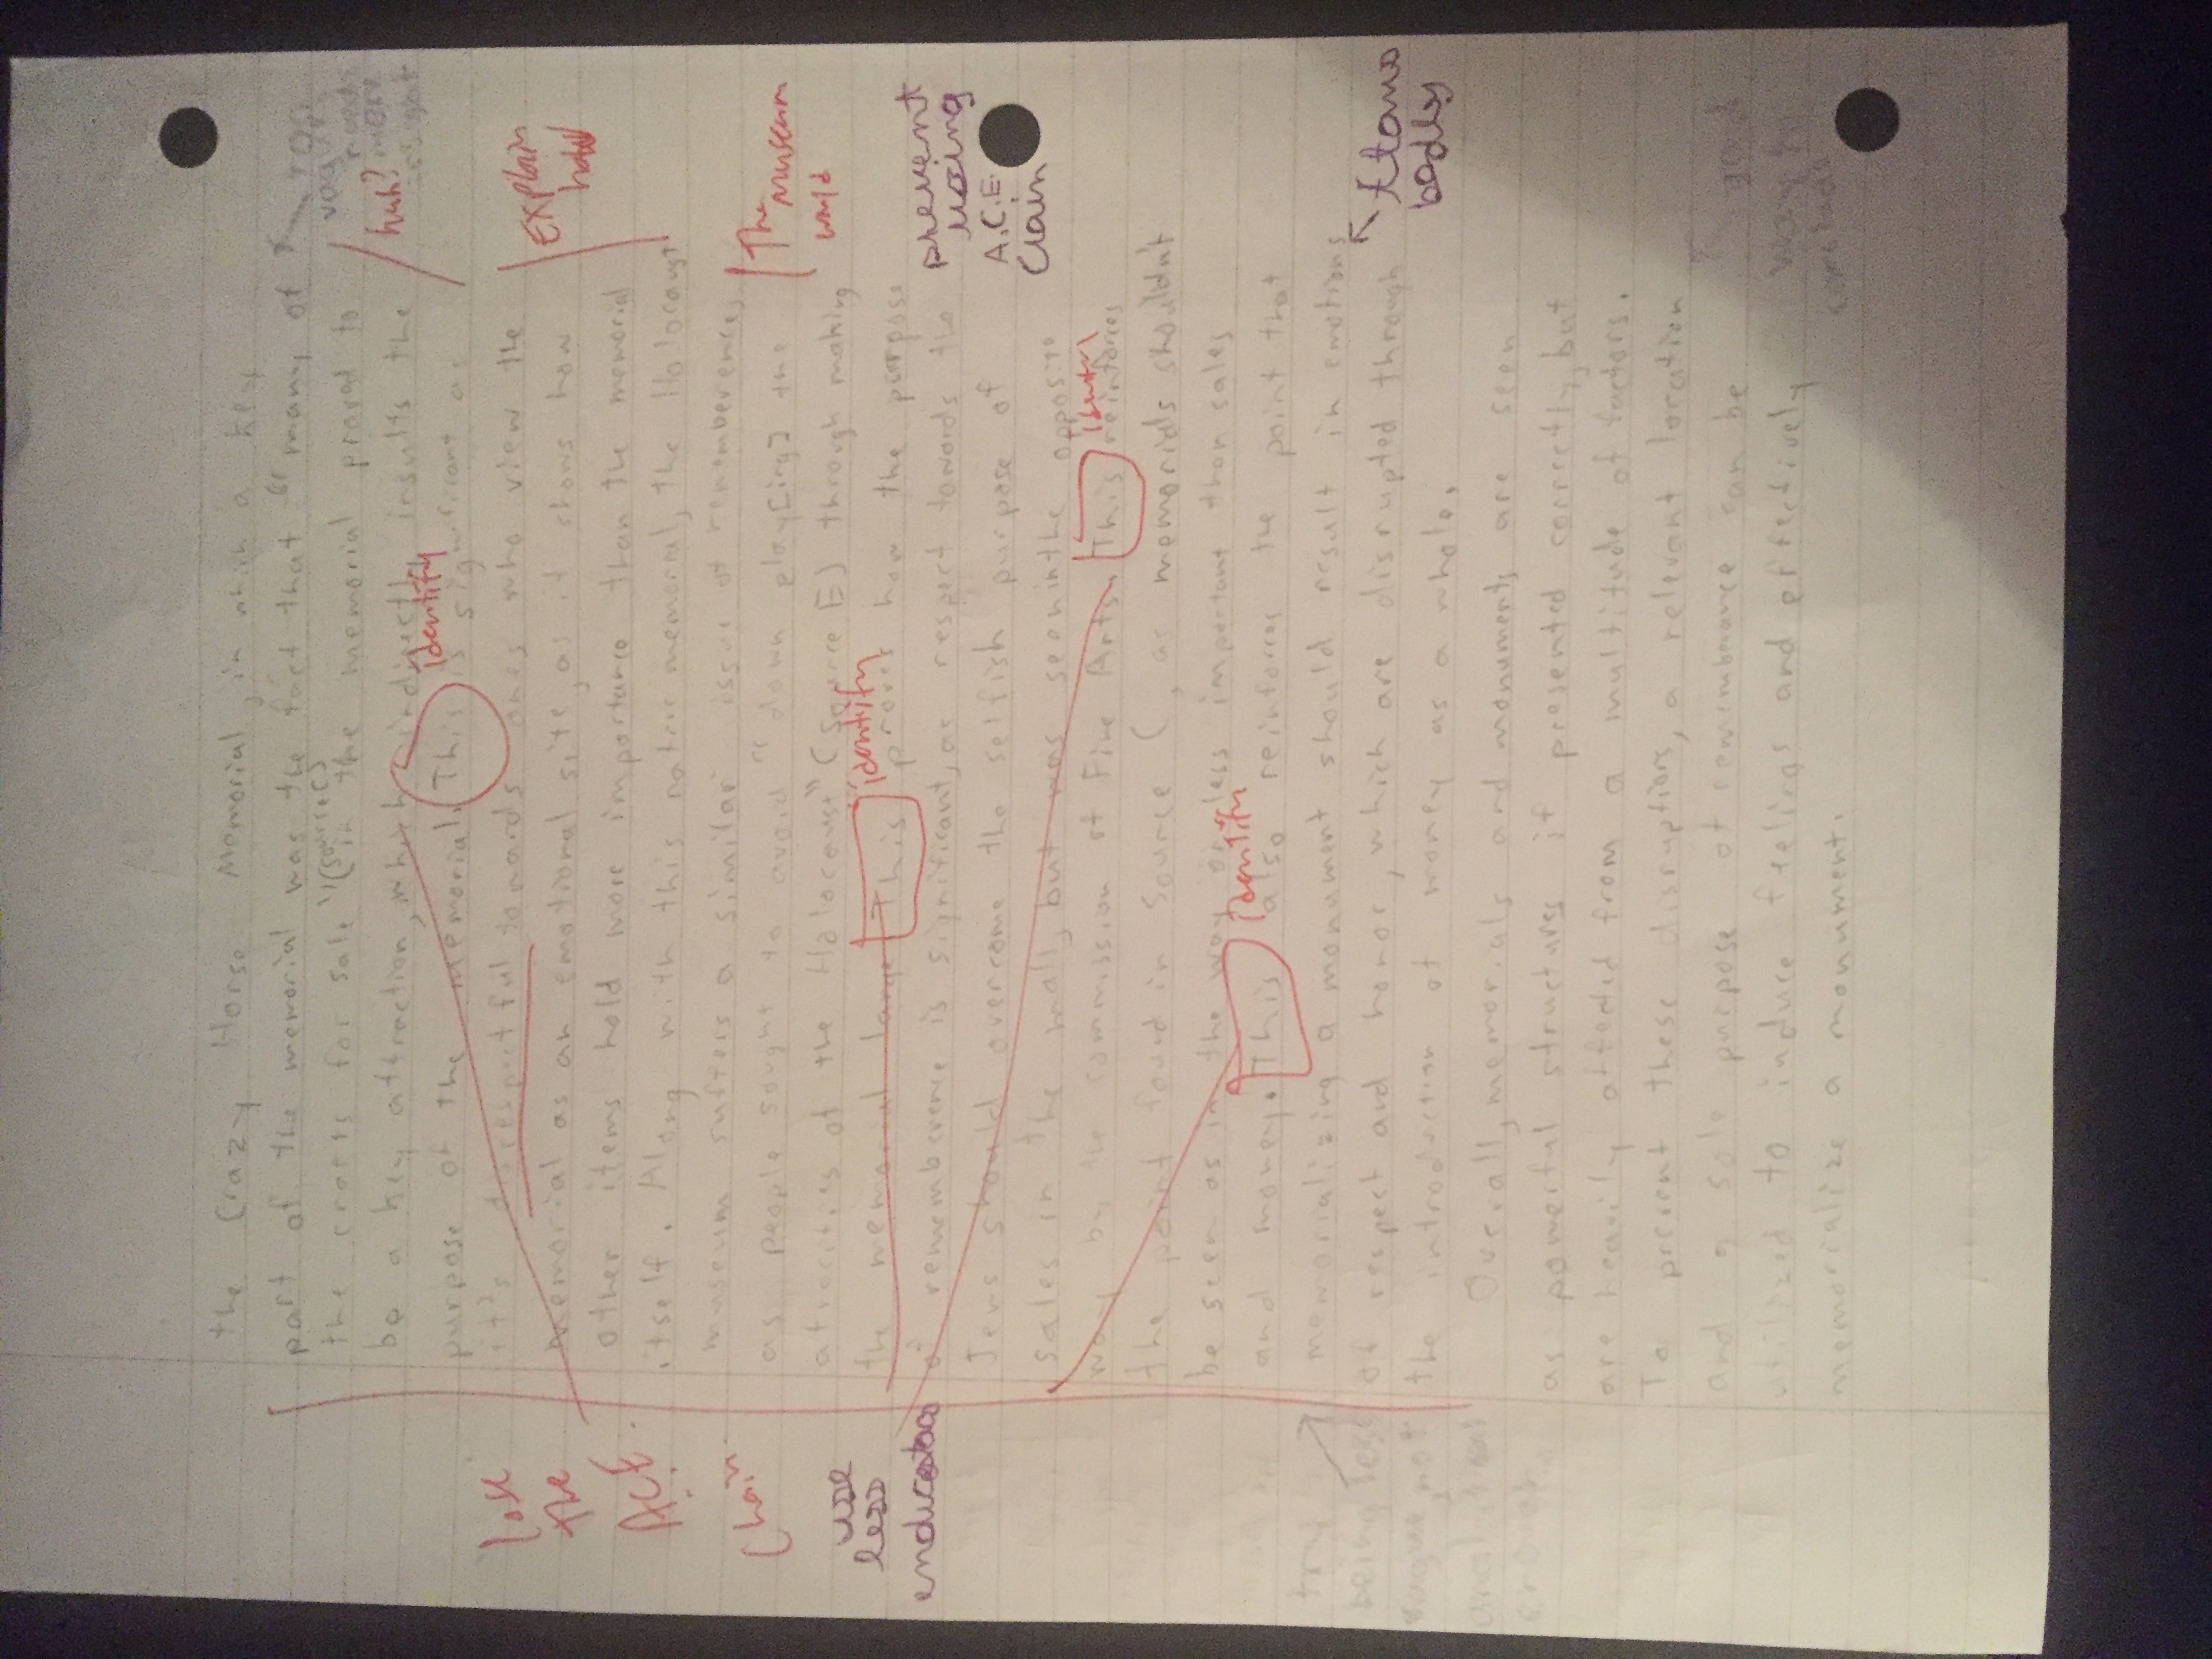 the Crazy Horse Memorial, in which a key
part of the memorial was the fact that "many of
the crafts for sale" (Source C) in the memorial proved to
be a key attraction, which indirectly insults the
purpose of the memorial. This is significant as
it's disrespectful towards ones who view the
memorial as an emotional site, as it shows how
other items hold more importance than the memorial
itself. Along with this native memorial, the Holocaust
museum suffers a similar issue of rememberence,
as people sought to avoid "down play[ing] the
atrocities of the Holocaust" (Source E) through making
the memorial large. This proves how the purpose
of rememberence is significant, as respect towards the
Jews should overcome the selfish purpose of
sales in the mall, but was seen in the opposite
way by the commission of Fine Arts. This reinforces
the point found in Source C, as memorials shouldn't
be seen as in the way or less important than sales
and money. This also reinforces the point that
memorializing a monument should result in emotions
of respect and honor, which are disrupted through
the introduction of money as a whole.
Overall, memorials and monuments are seen
as powerful structures if presented correctly, but
are heavily affected from a multitude of factors.
To prevent these disruptions, a relevant location
and a sole purpose of rememberance can be
utilized to induce feelings and effectively
memorialize a monument.
lose
the
ACE
Chain
use
less
try
being less
vague, not
analytical
enough
too
vague,
needs
more
insight
huh?
identify
Explain
how
The museum
would
identify
prevent
using
A.C.E.
Chain
identify
identify
badly
good
way to
conclude